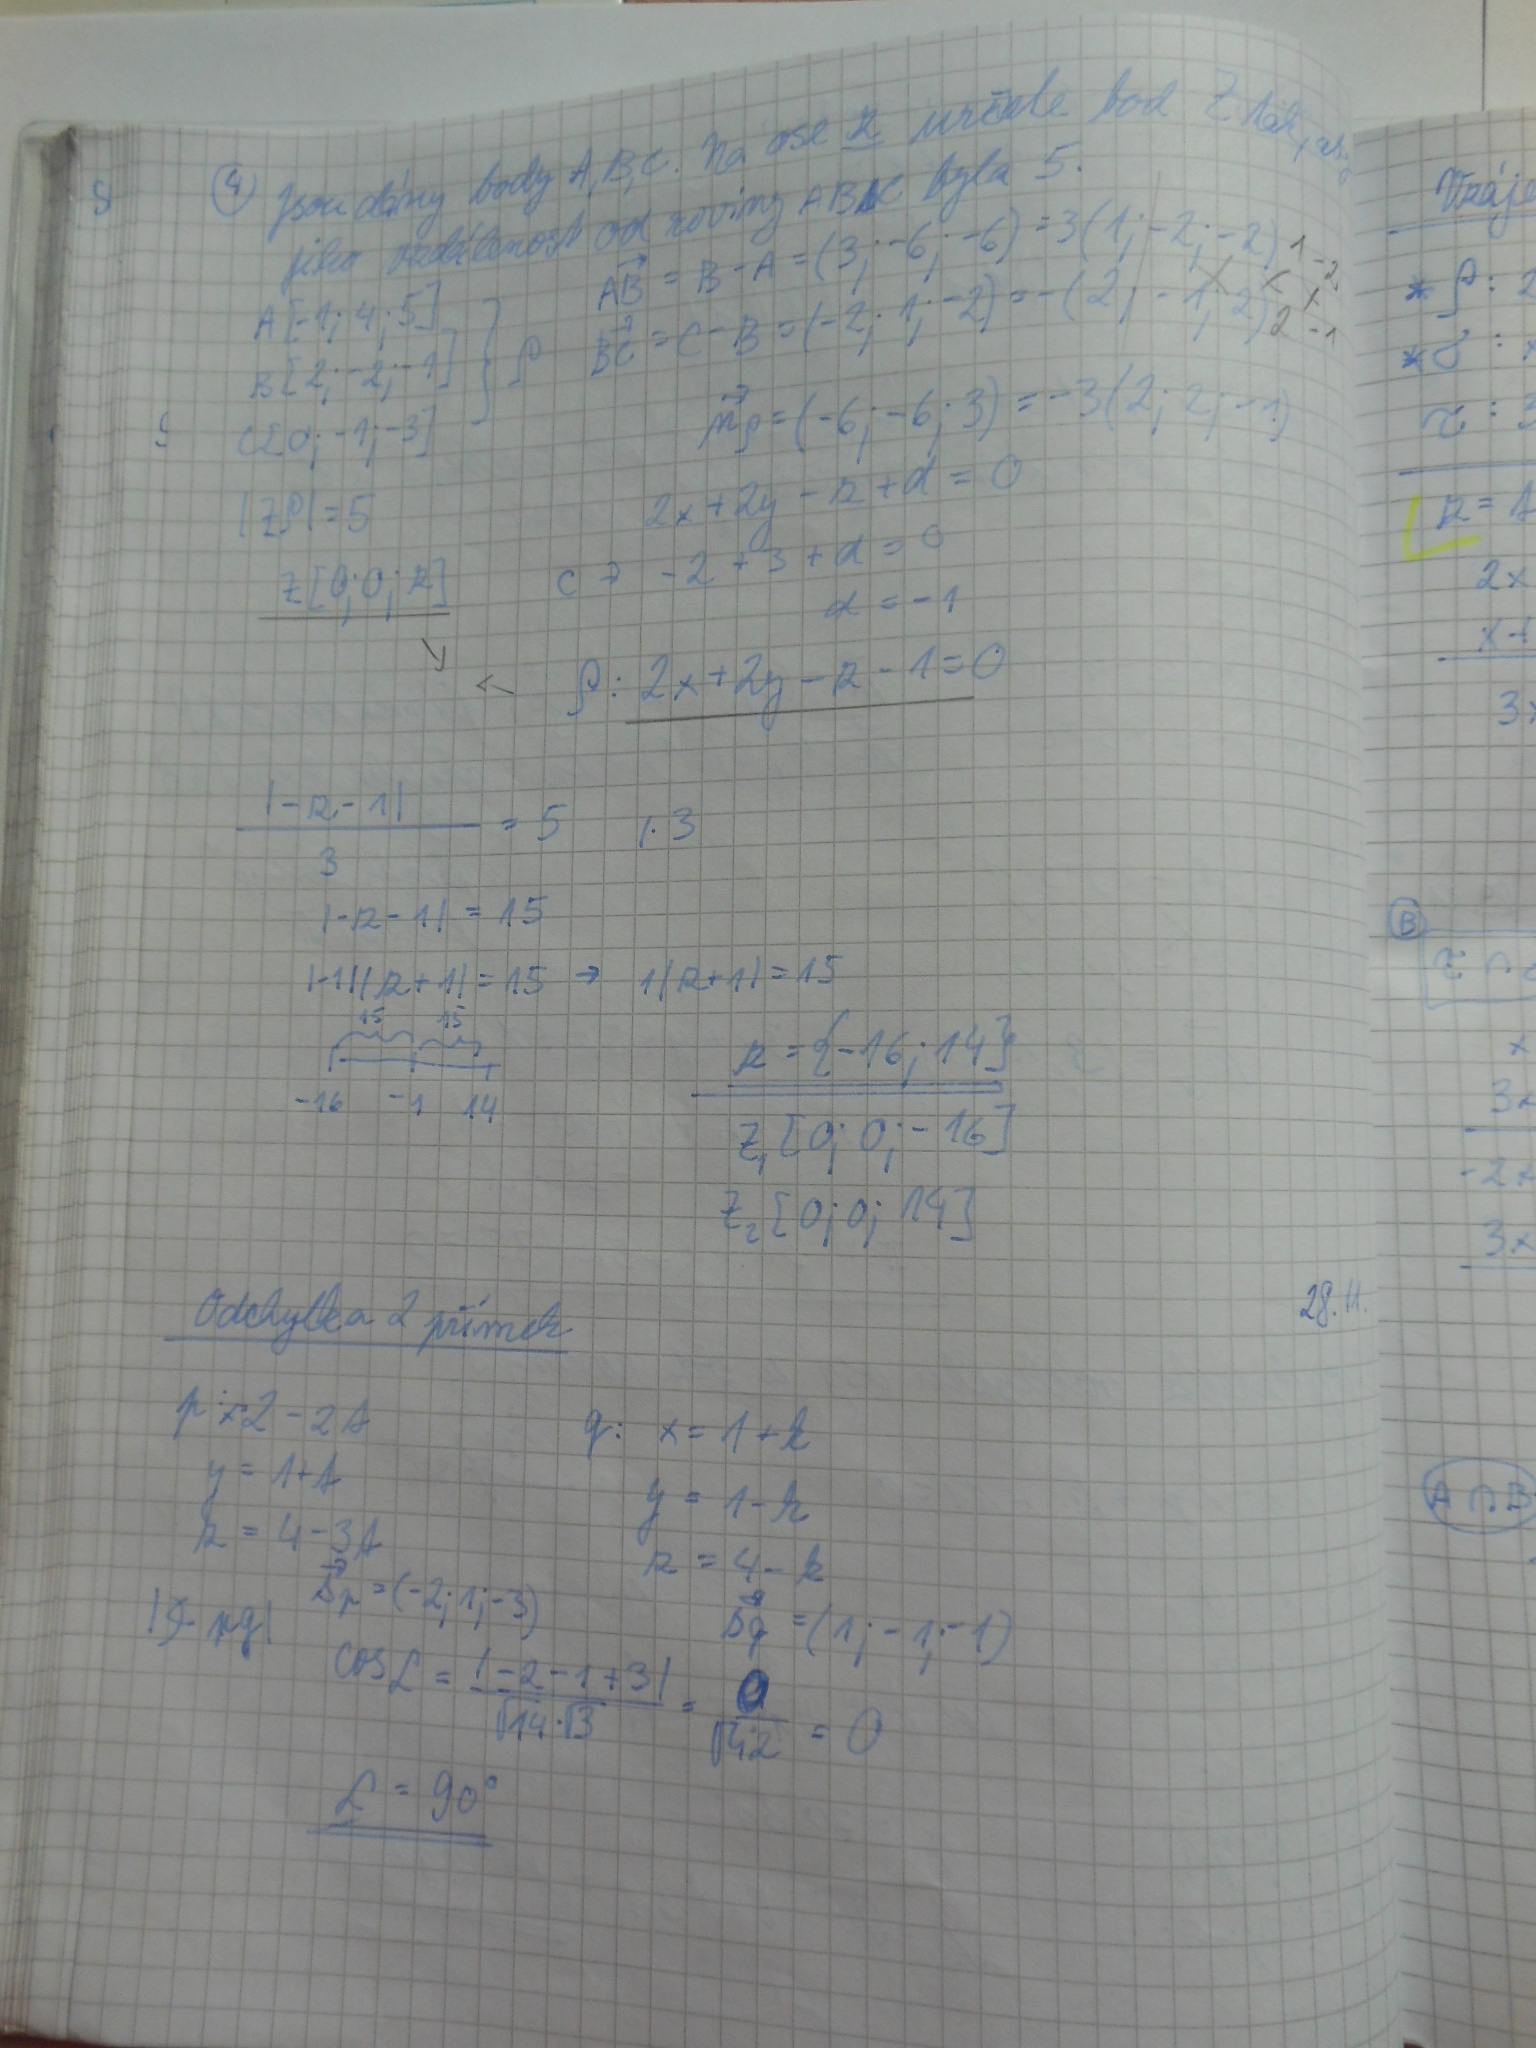 ④ Jsou dány body A, B, C. Na ose z určete bod Z tak, ab.
jeho vzdálenost od roviny ABC byla 5.
A[-1; 4; 5]
B[2; -2; -1]
C[0; -1; -3]
} ρ
AB = B - A = (3; -6; -6) = 3(1; -2; -2) 1 -2
BC = C - B = (-2; 1; -2) = -(2; -1; 2) 2 -1
nρ = (-6; -6; 3) = -3(2; 2; -1)
|Zρ| = 5
2x + 2y - z + d = 0
Z[0; 0; z]
C → -2 + 3 + d = 0
d = -1
← ρ: 2x + 2y - z - 1 = 0
|-z - 1|
3
= 5 /· 3
|-z - 1| = 15
|-1||z + 1| = 15 → 1|z + 1| = 15
15 15
-16 -1 14
z = {-16; 14}
Z₁[0; 0; -16]
Z₂[0; 0; 14]
28. 11.
Odchylka 2 přímek
p: x 2 - 2t
y = 1 + t
z = 4 - 3t
sp = (-2; 1; -3)
q: x = 1 + k
y = 1 - k
z = 4 - k
sq = (1; -1; -1)
|∢ pq|
cos α = |-2 - 1 + 3| / √14 · √3 = 0 / √42 = 0
α = 90°
Vzáje
* ρ: 2
* σ: x
τ: 3
z = t
2x
x +
3x
B
τ ∩
x
3x
-2x
3x
A ∩ B